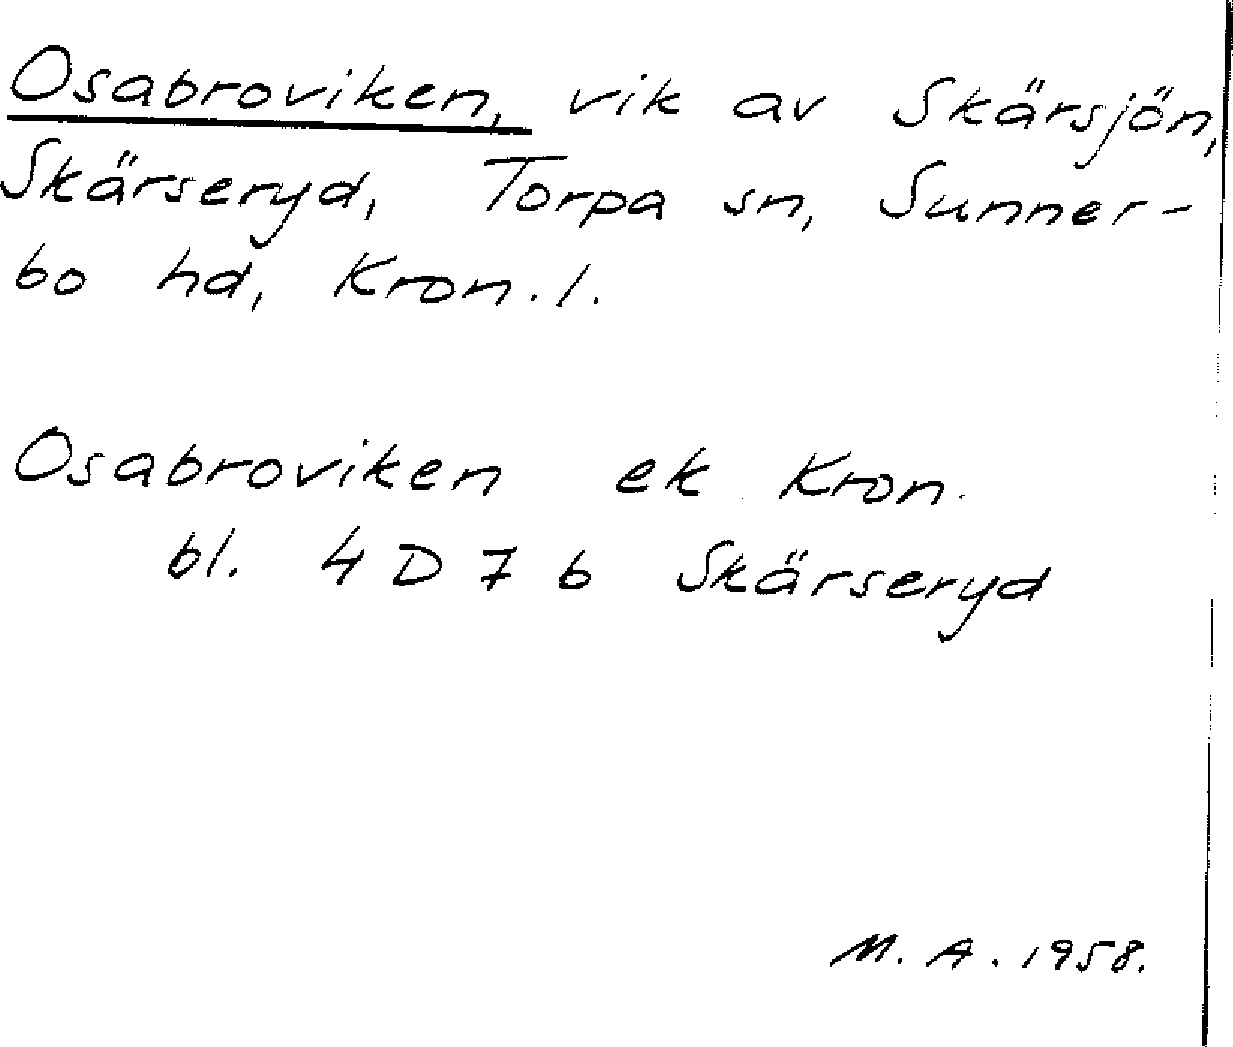 Osabroviken, vik av Skärsjön,
Skärseryd, Torpa sn, Sunner-
bo hd, Kron. l.
Osabroviken ek Kron.
bl. 4 D 7 b Skärseryd
M. A. 1958.